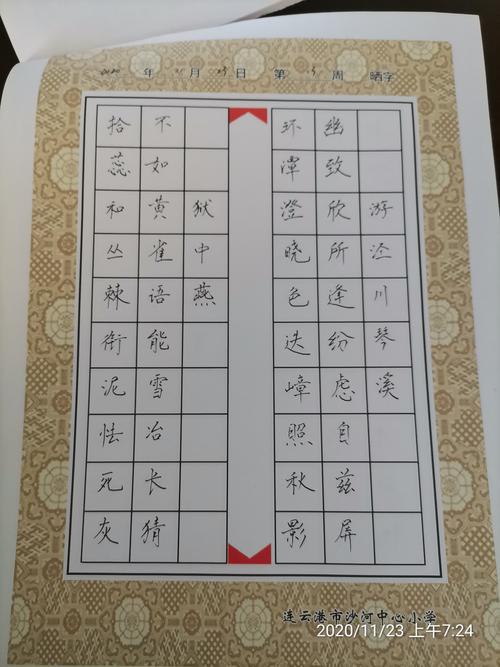 2020 年 11 月 23 日 第 13 周 晒字
拾蕊和丛棘衔泥怯死灰
不如黄雀语能雪冶长猜
狱中燕
环潭澄晓色迭嶂照秋影
幽致欣所逢纷虑自兹屏
游泾川琴溪
连云港市沙河中心小学
2020/11/23 上午7:24